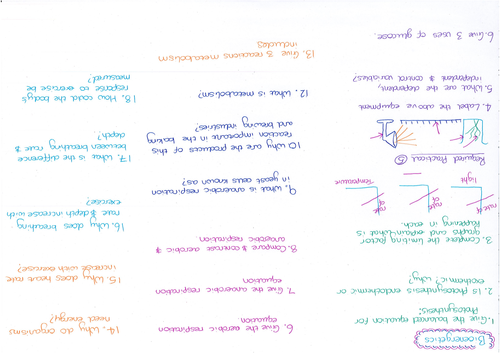 Bioenergetics
1. Give the balanced equation for
Photosynthesis.
2. Is photosynthesis endothermic or
exothermic? Why?
3. Complete the limiting factor
graphs and explain what is
happening in each.
rate of
rate of
rate of
light
Temperature
Required Practical 5
4. Label the above equipment
5. What are the dependent,
independent & control variables?
6. Give 3 uses of glucose.
6. Give the aerobic respiration
equation
7. Give the anaerobic respiration
equation
8. Compare & contrast aerobic &
anaerobic respiration
9. What is anaerobic respiration
in yeast cells known as?
10. Why are the products of this
reaction important in the baking
and brewing industries?
12. What is metabolism?
13. Give 3 reactions metabolism
includes
14. Why do organisms
need energy?
15. Why does heart rate
increase with exercise?
16. Why does breathing
rate & depth increase with
exercise?
17. What is the difference
between breathing & rate &
depth?
18. How could the body's
response to exercise be
measured?